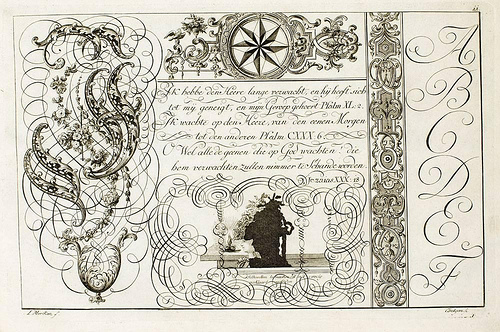 IK hebbe den Heere lange verwacht, en hy heeft sich
tot my geneigt, en myn Geroep gehoort Psalm XL. 2.
IK wachte op den Heere, van den eenen Morgen
tot den anderen Psalm CXXX 6.
Wel alle de geenen die op God wachten: die
hem verwachten zullen nimmer te Schande worden.
XXX. 18
A
B
C
D
E
F